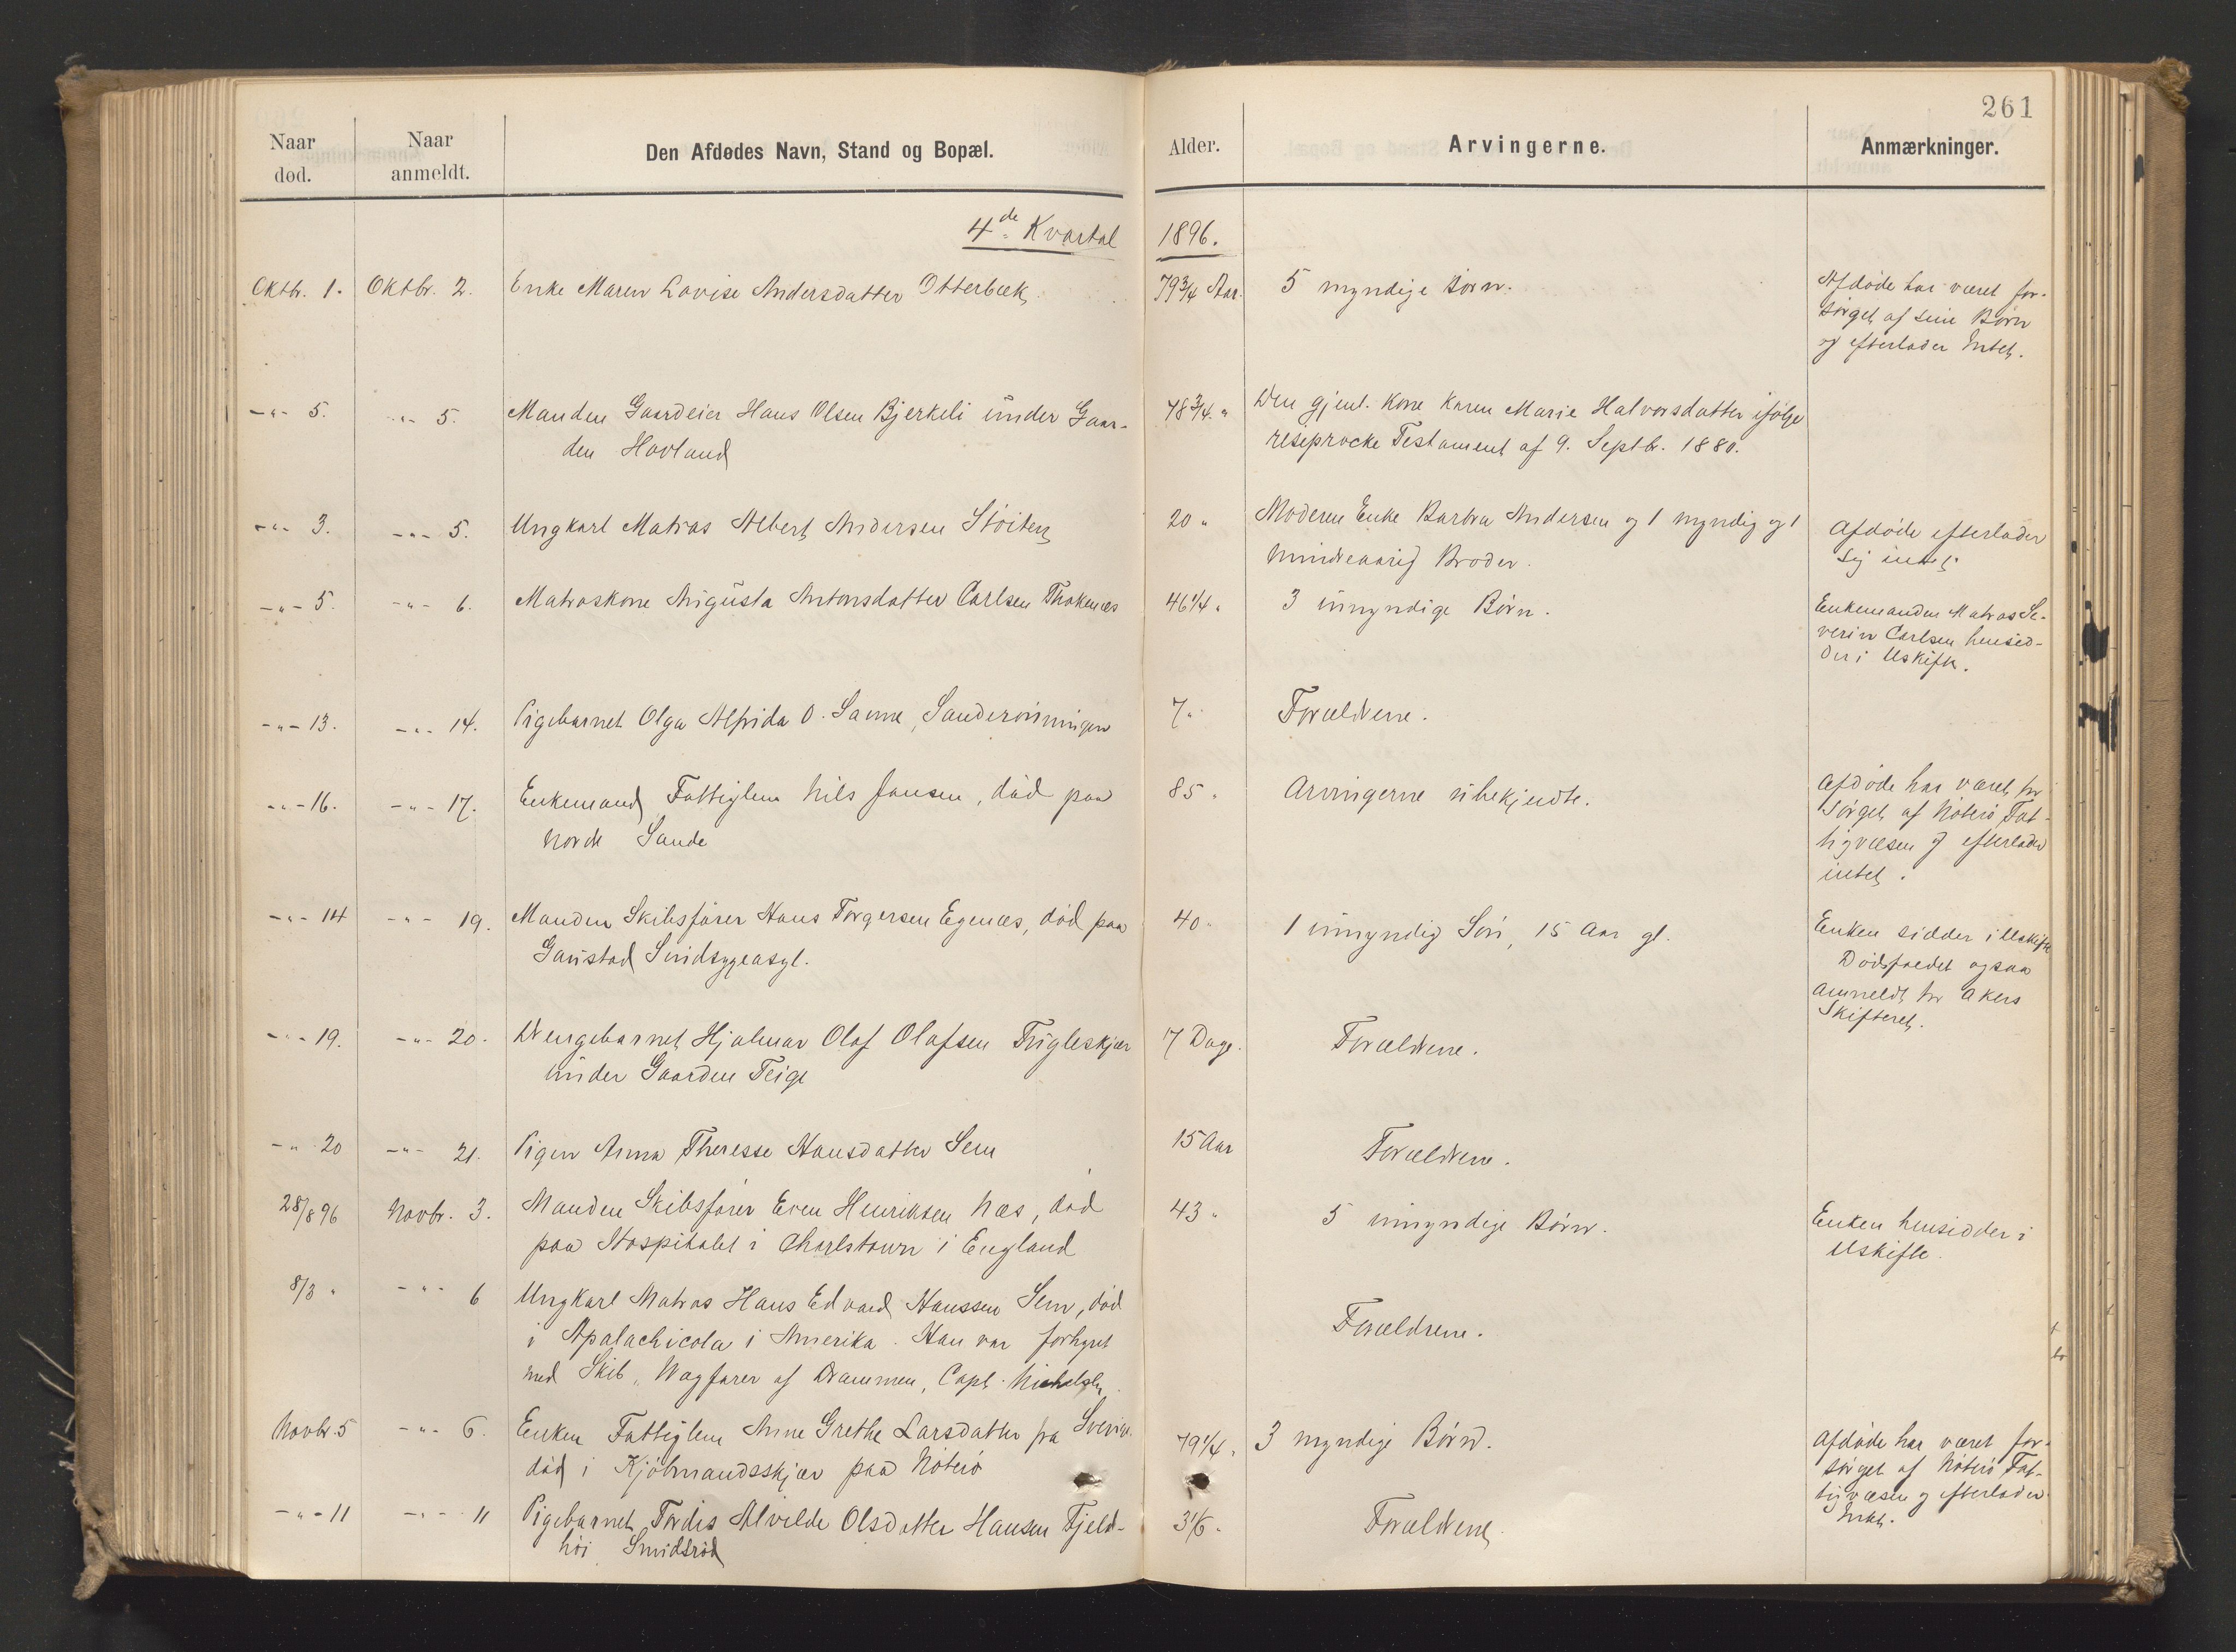 261
Naar død.
Naar anmeldt.
Den Afdødes Navn, Stand og Bopæl.
Alder.
Arvingerne.
Anmærkninger.
4de Kvartal 1896.
Oktb. 1. Oktbr. 2. Enke Maren Lovise Andersdatter Otterbæk 79 3/4 Aar. 5 myndige Børn.
Afdøde har været for-
sørget af sine Børn
og efterlader Intet.
-"- 5. -"- 5. Manden Gaardeier Hans Olsen Bjerkeli under Gaar-
den Hovland
78 3/4. " Den gjenl. Kone Karen Marie Halvorsdatter ifølge
resiprocke Testament af 9. Septbr. 1880.
-"- 3. -"- 5. Ungkarl Matros Albert Andersen Støiten
20 " Moderen Enke Barbra Andersen og 1 myndig og 1
mindreaarig Broder.
Afdøde efterlader
sig intet.
-"- 5. -"- 6. Matroskone Augusta Antonsdatter Carlsen Thokenæs
46 1/4 " 3 umyndige Børn.
Enkemanden Matros Se-
verin Carlsen hensid-
der i Uskifte.
-"- 13. -"- 14. Pigebarnet Olga Alfrida O. Sanne, Sanderønningen
7 " Forældrene.
-"- 16. -"- 17. Enkemand Fattiglem Nils Jansen, død paa
nordre Sande
85 " Arvingerne ubekjendte.
Afdøde har været for
sørget af Nøterø Fat-
tigvæsen og efterlader
intet.
-"- 14 -"- 19. Manden Skibsfører Hans Torgersen Egenæs, død paa
Gaustad Sindsygeasyl.
40 " 1 umyndig Søn, 15 Aar gl.
Enken sidder i Uskifte
Dødsfaldet ogsaa
anmeldt for Akers
Skifteret.
-"- 19. -"- 20. Drengebarnet Hjalmar Olaf Olafsen Fugleskjær
under Gaarden Teige
7 Dage. Forældrene.
-"- 20 -"- 21. Pigen Anna Theresse Hansdatter Sem
15 Aar Forældrene.
28/8 96 Novbr. 3. Manden Skibsfører Even Henriksen Næs, død
paa Hospitalet i Charlstown i England
43 " 5 umyndige Børn.
Enken hensidder i
Uskifte.
8/3 " -"- 6 Ungkarl Matros Hans Edvard Hanssen Sem, død
i Apalachicola i Amerika. Han var forhyret
med Skib "Wagfarer af Drammen, Capt.
Forældrene.
Novbr. 5 -"- 6. Enken Fattiglem Anne Grethe Larsdatter fra
død i Kjøbmandsskjær paa Nøterø
79 1/4 " 3 myndige Børn.
Afdøde har været for-
sørget af Nøterø Fat-
tigvæsen og efterlader
Intet.
-"- 11 -"- 11 Pigebarnet Tordis Alvilde Olsdatter Hansen Fjeld-
høi Smidsrød
3 1/6 " Forældrene